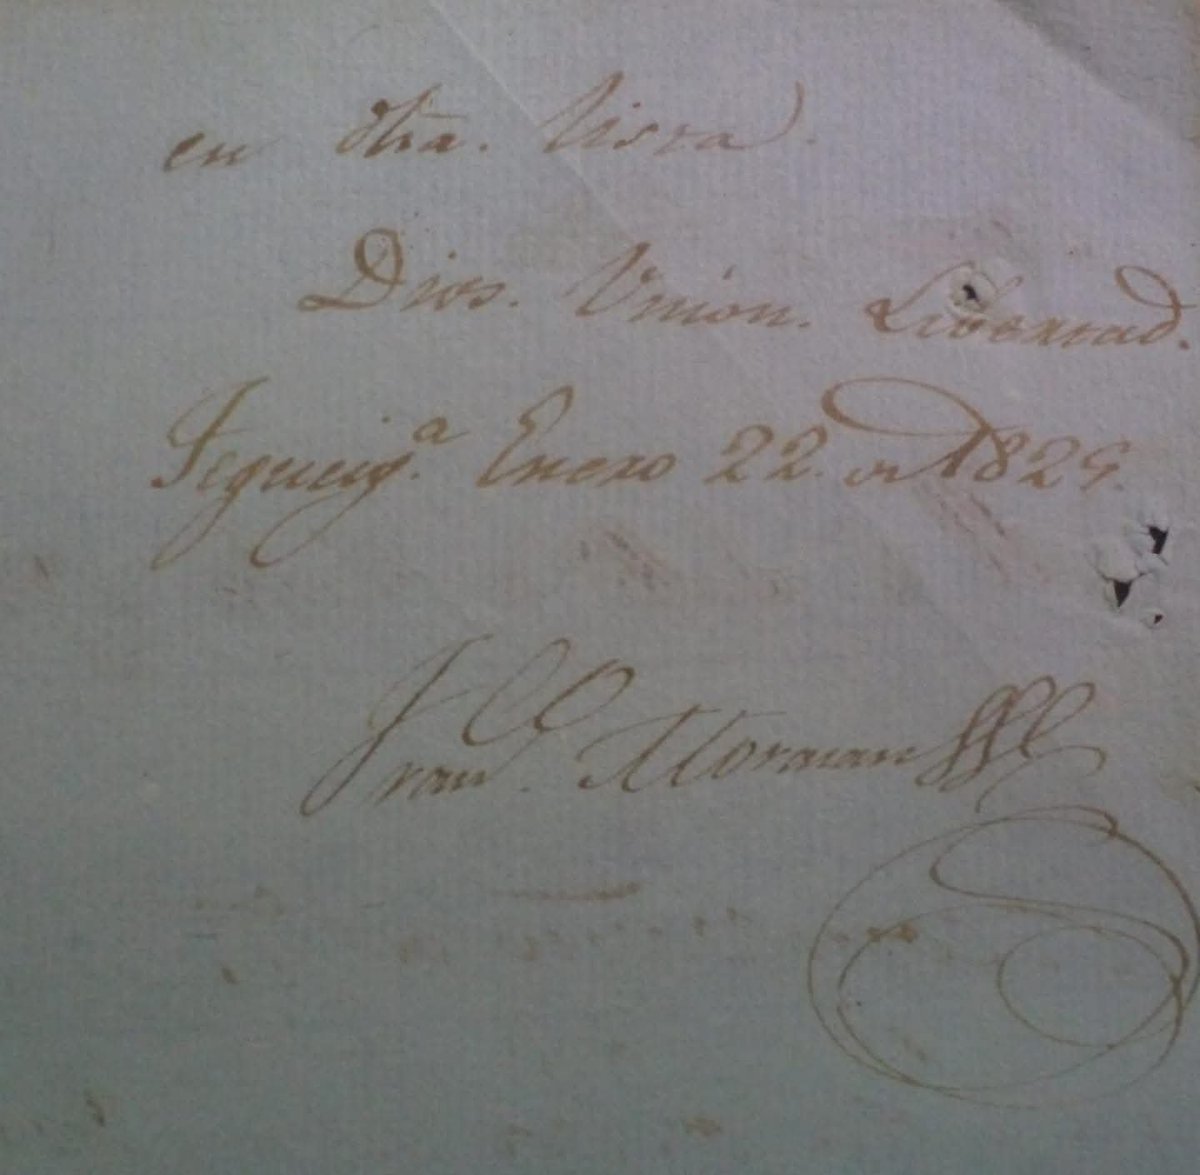 en otra. lista.
Dios. Union. Libertad.
Tegucig.ª Enero 22. de 1825.
Fran.co Morazan